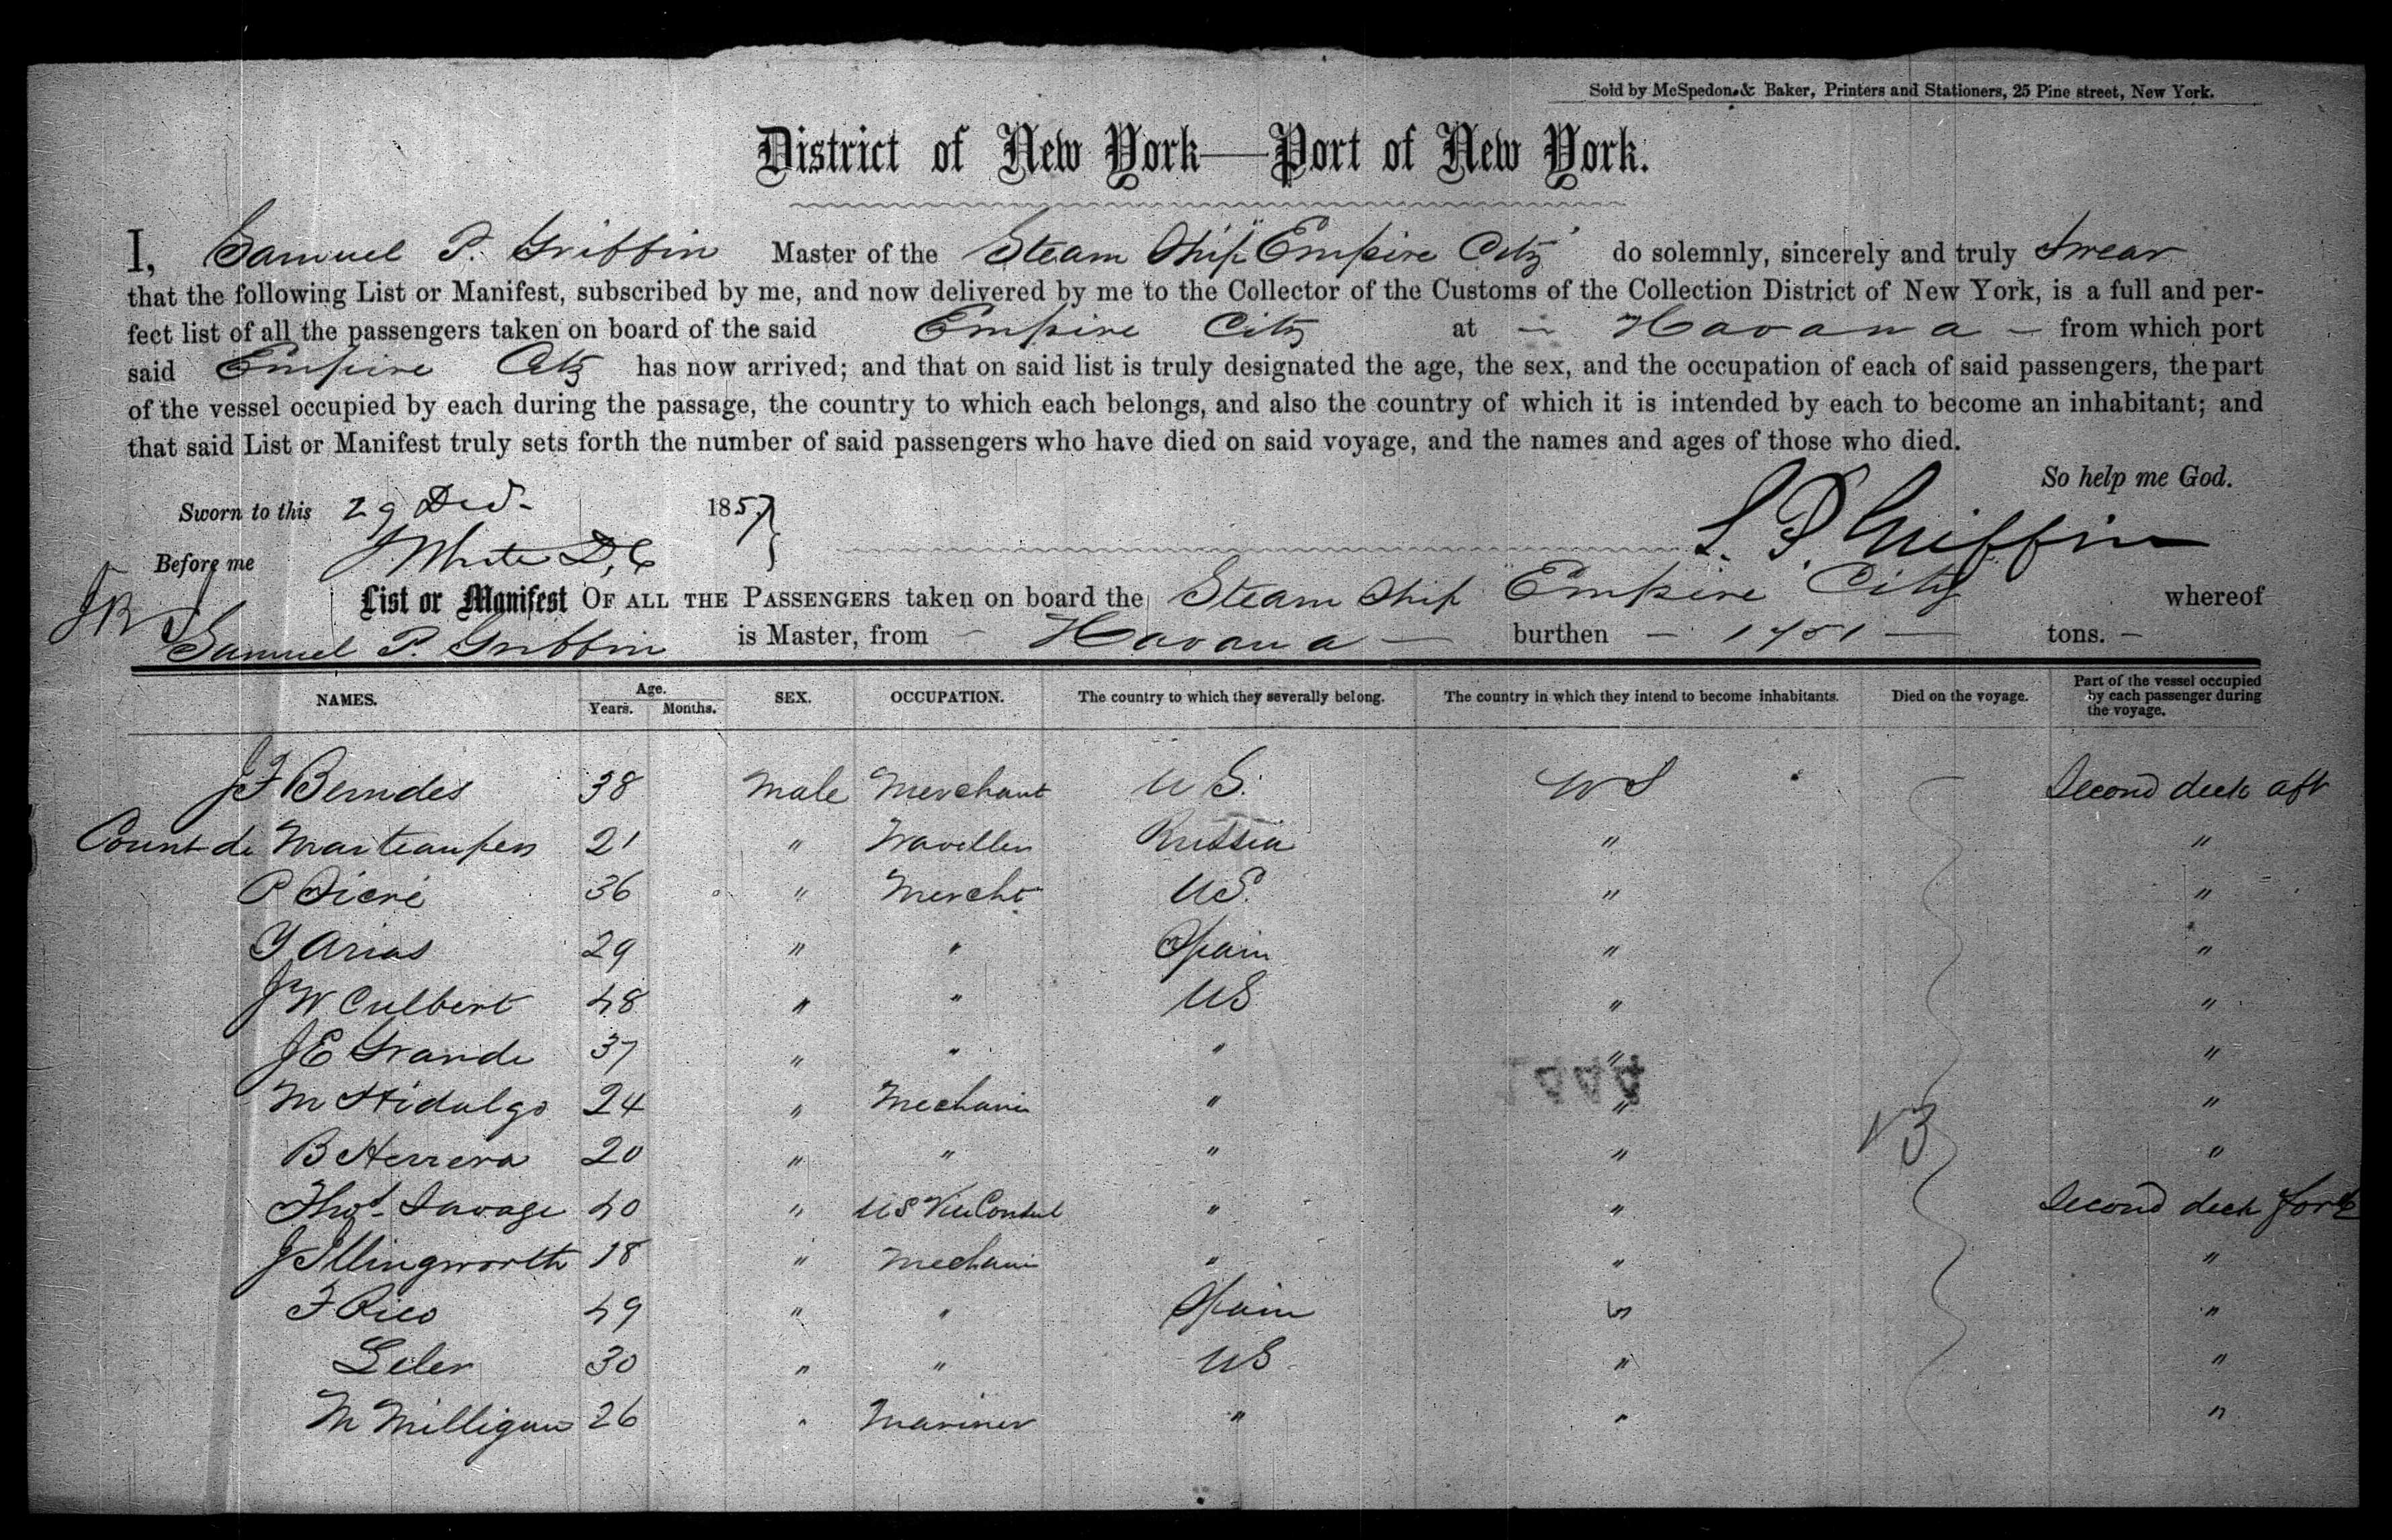 Sold by McSpedon & Baker, Printers and Stationers, 25 Pine street, New York.
District of New York—Port of New York.
I, Samuel P. Griffin Master of the Steam Ship "Empire City" do solemnly, sincerely and truly Swear
that the following List or Manifest, subscribed by me, and now delivered by me to the Collector of the Customs of the Collection District of New York, is a full and per-
fect list of all the passengers taken on board of the said Empire City at - Havana - from which port
said Empire City has now arrived; and that on said list is truly designated the age, the sex, and the occupation of each of said passengers, the part
of the vessel occupied by each during the passage, the country to which each belongs, and also the country of which it is intended by each to become an inhabitant; and
that said List or Manifest truly sets forth the number of said passengers who have died on said voyage, and the names and ages of those who died.
So help me God.
Sworn to this 29 Decr 1857
S. P. Griffin
Before me J White D,C
JB
List or Manifest OF ALL THE PASSENGERS taken on board the Steam Ship Empire City whereof
Samuel P. Griffin is Master, from - Havana - burthen - 1751 - tons. -
NAMES. Age. Years. Months. SEX. OCCUPATION. The country to which they severally belong. The country in which they intend to become inhabitants. Died on the voyage. Part of the vessel occupied by each passenger during the voyage.
J F Berndes 38 Male Merchant US. US Second deck aft
Count de 21 " Traveller Russia " "
P 36 " Mercht US. " "
Y Arias 29 " " Spain " "
J W Culbert 48 " " US " "
J E Grande 37 " " " " "
M Hidalgo 24 " Mechanic " " "
1444
B Herrera 20 " " " " "
13
Thos Savage 40 " US ViceConsul " " Second deck forwd
J Illingworth 18 " Mechanic " " "
F Rico 49 " " Spain " "
Leler 30 " " US " "
M Milligan 26 " Mariner " " "